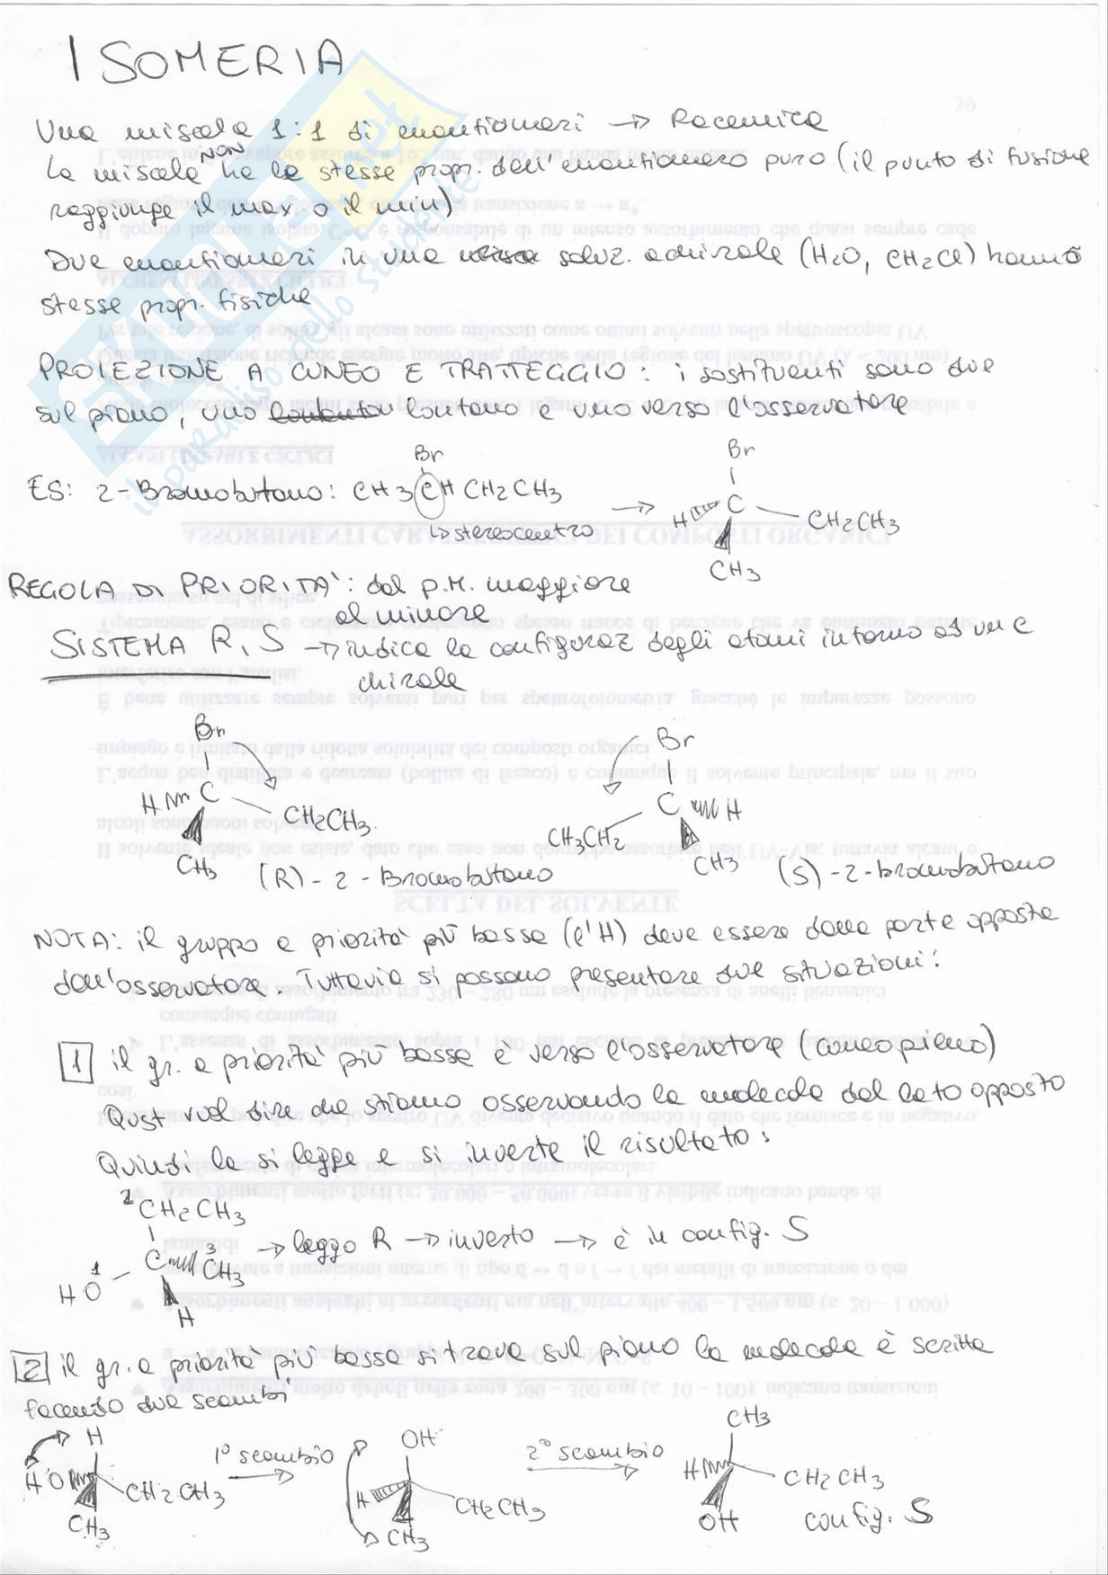 ISOMERIA
Una miscela 1:1 di enantiomeri → Racemica
La miscela NON ha le stesse propr. dell'enantiomero puro (il punto di fusione
raggiunge il max o il min)
Due enantiomeri in una soluz. achirale (H2O, CH2Cl) hanno
stesse propr. fisiche
PROIEZIONE A CUNEO E TRATTEGGIO: i sostituenti sono due
sul piano, uno lontano e uno verso l'osservatore
Br
Br
ES: 2-Bromobutano: CH3CHCH2CH3 → H C CH2CH3
↳ stereocentro
CH3
REGOLA DI PRIORITA': dal p.M. maggiore
al minore
SISTEMA R, S → indica la configuraz degli atomi intorno ad un C
chirale
Br
Br
H C CH2CH3
CH3CH2 C H
CH3 (R)-2-Bromobutano
CH3 (S)-2-bromobutano
NOTA: il gruppo a priorità più bassa (l'H) deve essere dalla parte opposta
dall'osservatore. Tuttavia si possono presentare due situazioni:
1 il gr. a priorità più bassa è verso l'osservatore (cuneo pieno)
Quest vuol dire che stiamo osservando la molecola dal lato opposto
Quindi la si legge e si inverte il risultato:
2 CH2CH3
C 3 CH3 → leggo R → inverto → è in config. S
1 HO
H
2 il gr. a priorità più bassa si trova sul piano la molecola è scritta
facendo due scambi
H
HO CH2CH3
CH3
1° scambio
OH
H CH2CH3
CH3
2° scambio
CH3
H CH2CH3
OH config. S
il paradiso dello studente